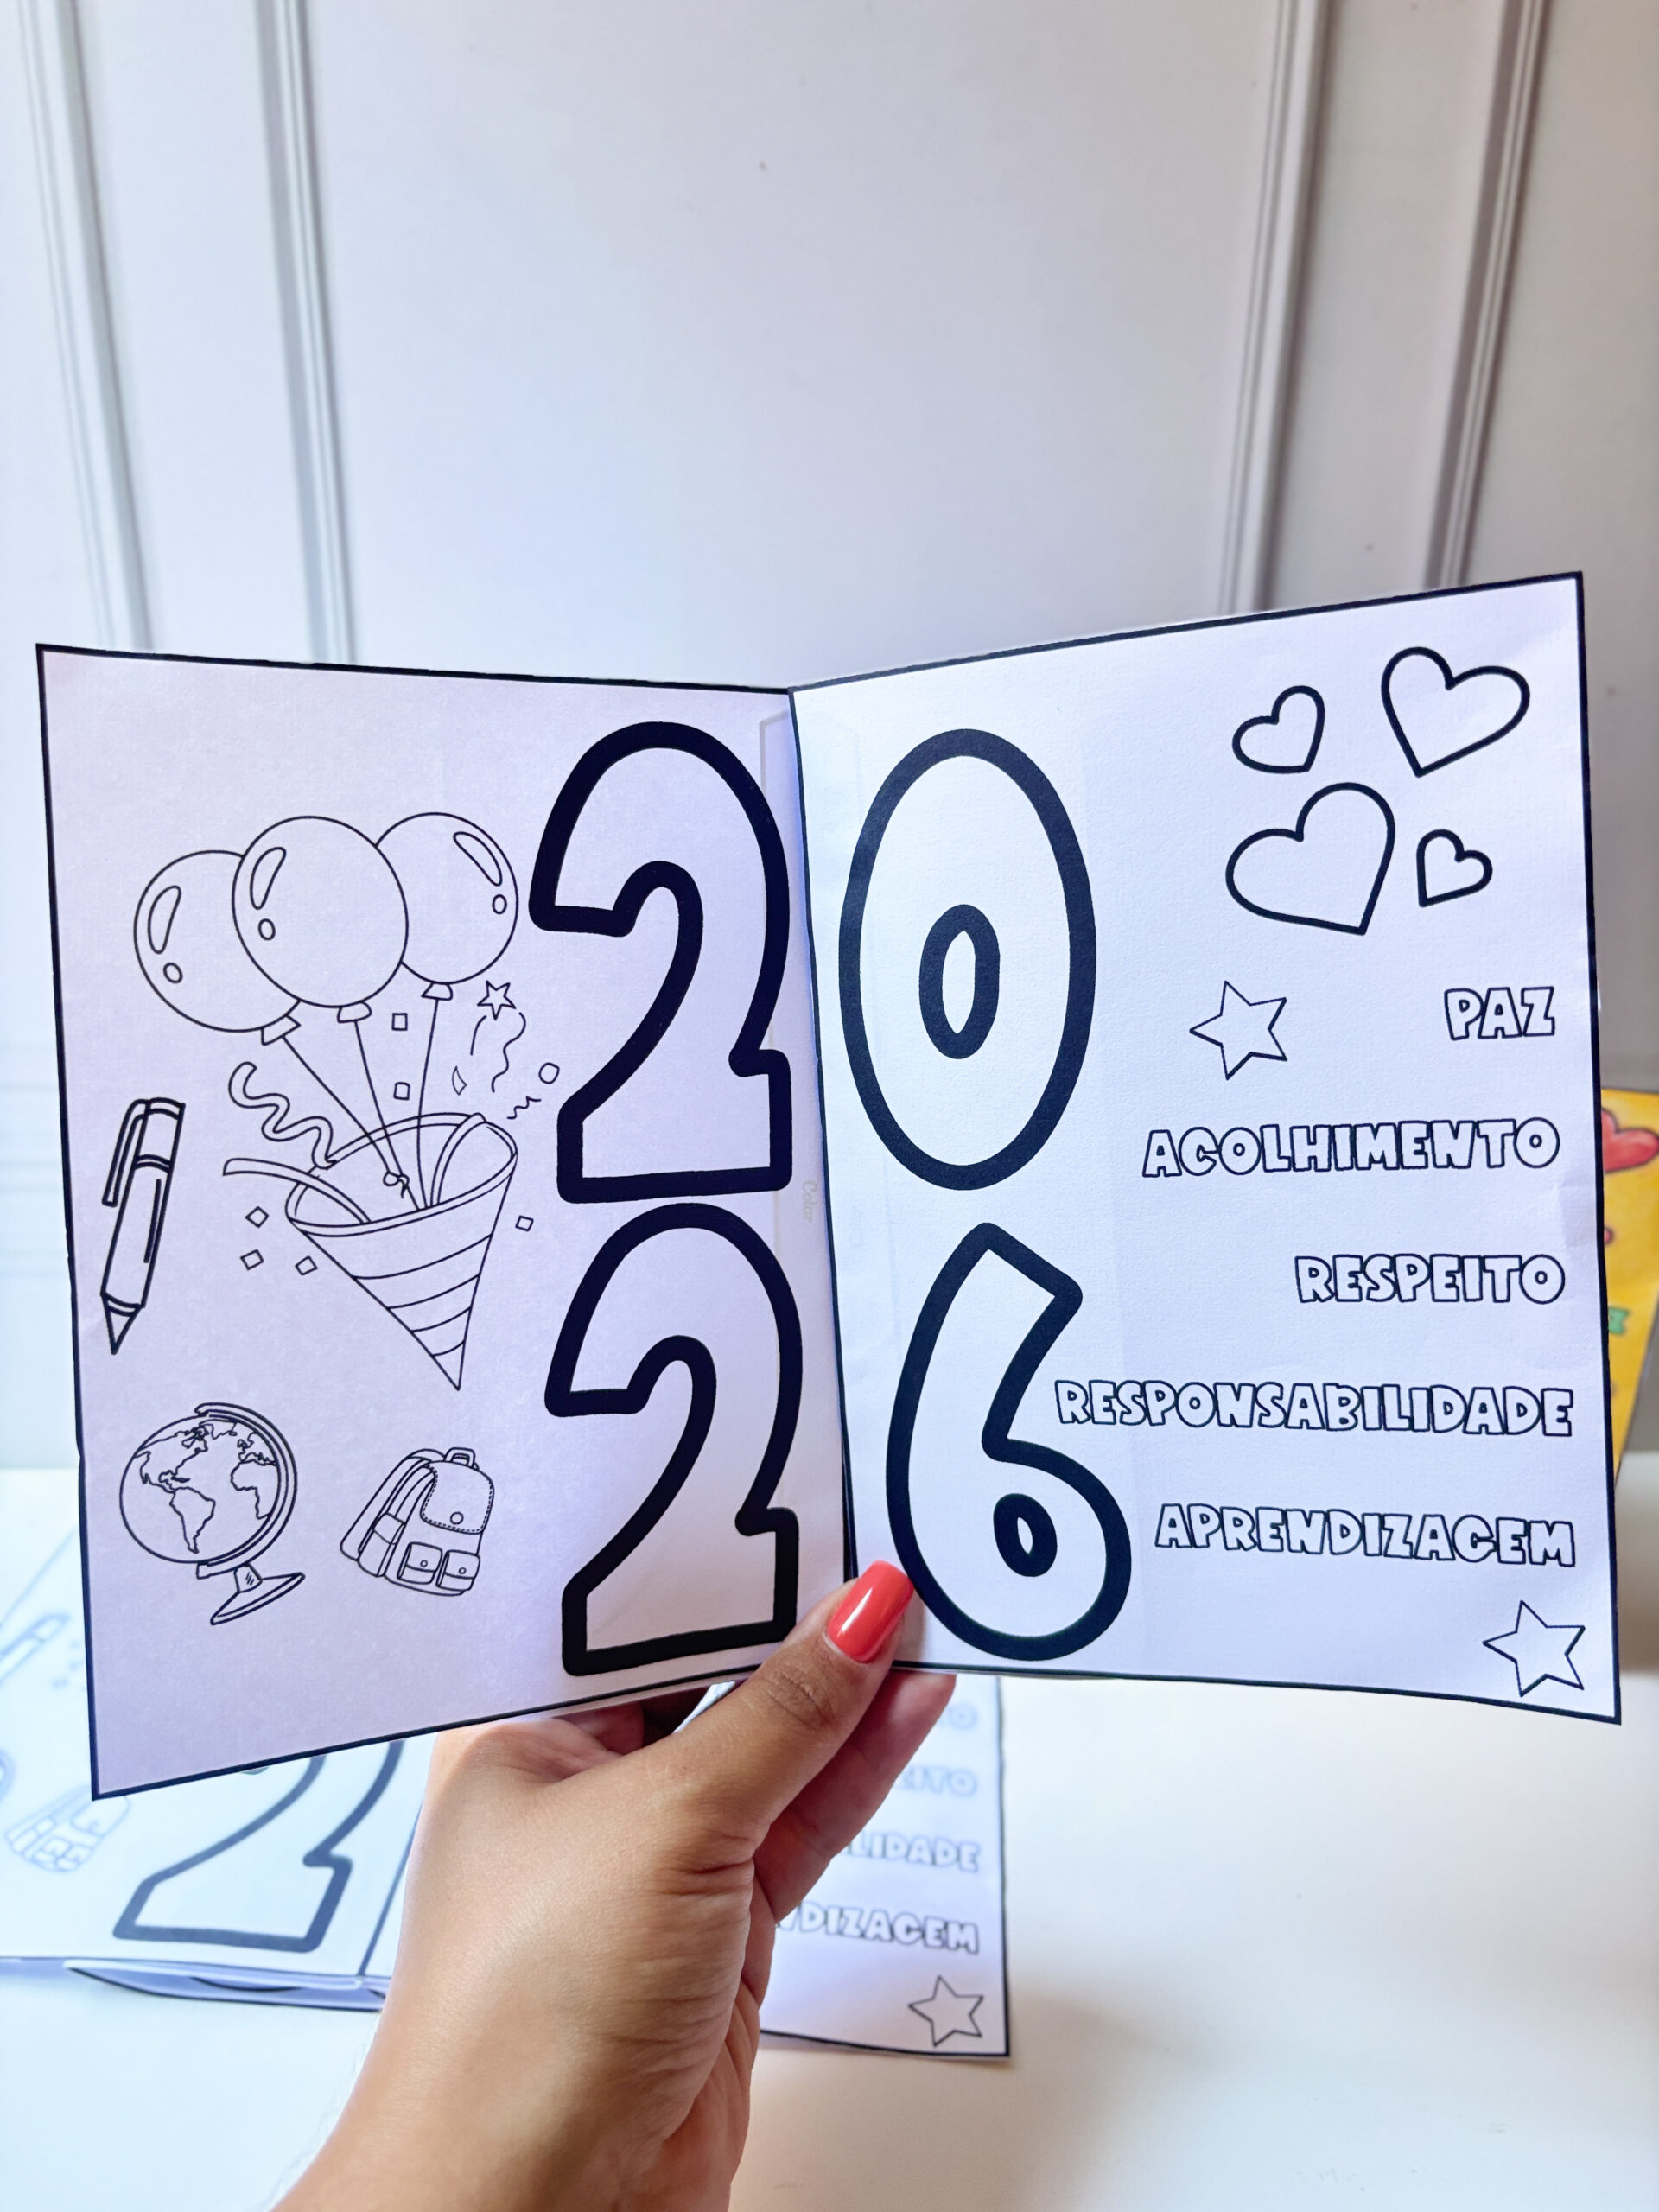 20
26
PAZ
ACOLHIMENTO
RESPEITO
RESPONSABILIDADE
APRENDIZAGEM
Color
2
LIDADE
NDIZAGEM